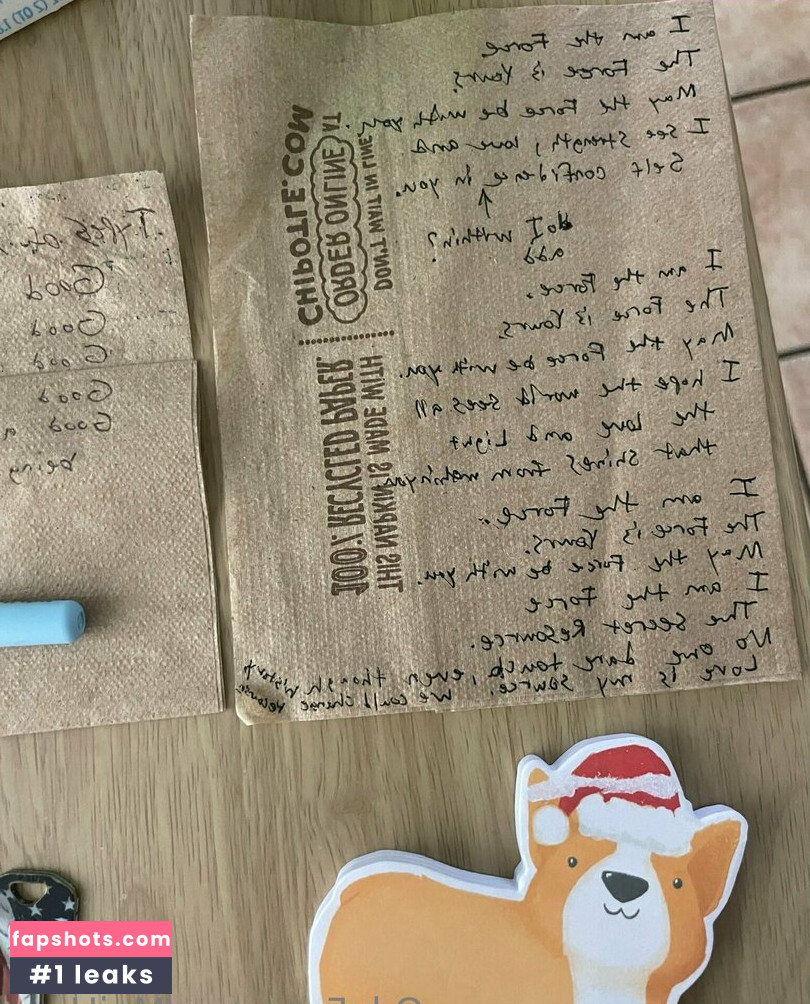 I am the Force
The Force is Yours.
May the Force be with you.
I see strength, love and
Self confidence in you.
do I within?
add
I am the Force.
The Force is Yours.
May the Force be with you.
I hope the world sees all
the love and Light
that shines from within you
I am the Force.
The Force is Yours.
May the Force be with you.
I am the Force
The Secret Resource.
No one dare touch, even though
Love is my source. We could change history
because
CHIPOTLE.COM
ORDER ONLINE AT
DON'T WAIT IN LINE.
100% RECYCLED PAPER.
THIS NAPKIN IS MADE WITH
I
Good
Good
Good
Good
Good a
being
fapshots.com
#1 leaks